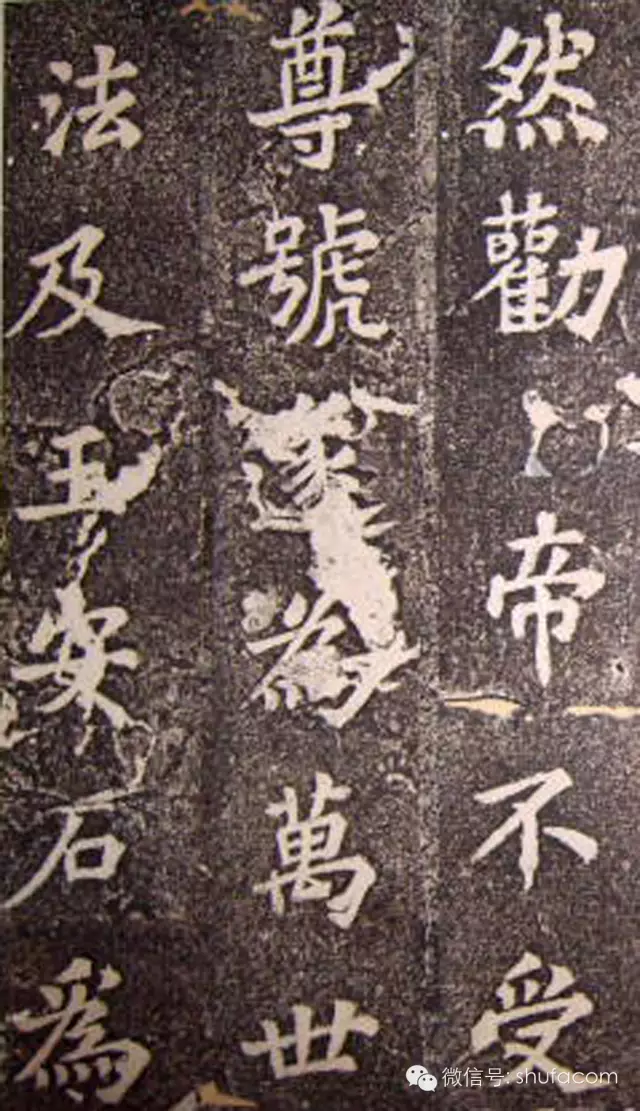 然勸帝不受
尊號遂為萬世
法及王安石為
微信号: shufacom